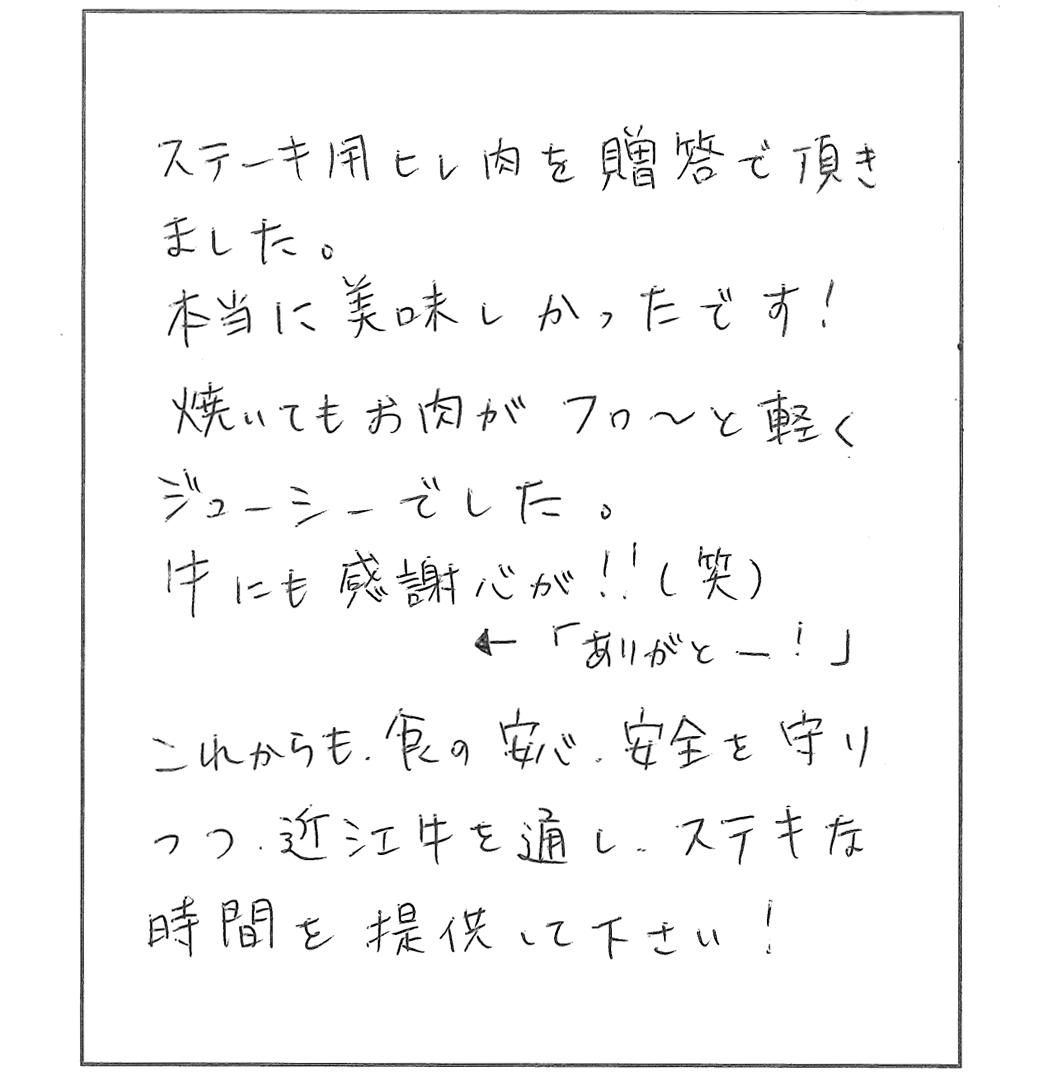 ステーキ用ヒレ肉を贈答で頂き
ました。
本当に美味しかったです!
焼いてもお肉がフロ〜と軽く
ジューシーでした。
牛にも感謝心が!!(笑)
←「ありがとー!」
これからも、食の安心、安全を守り
つつ、近江牛を通し、ステキな
時間を提供して下さい!